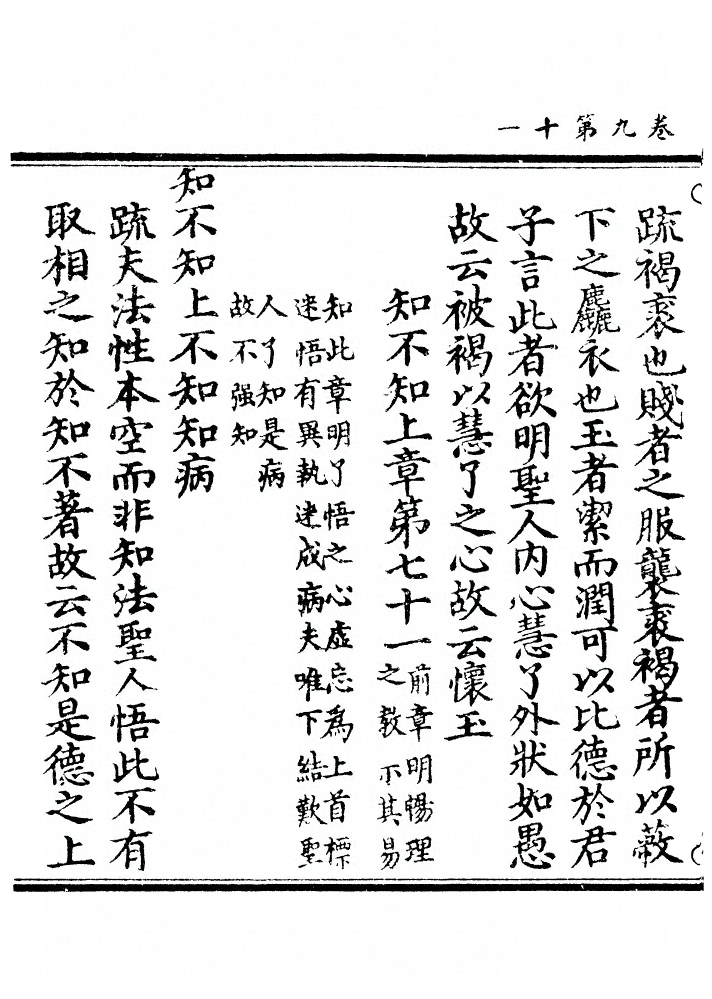 卷九第十一
疏褐裘也賤者之服襲裘褐者所以蔽
下之麤衣也玉者潔而潤可以比德於君
子言此者欲明聖人内心慧了外狀如愚
故云被褐以慧了之心故云懷玉
知不知上章第七十一前章明暢理
之教示其易
知此章明了悟之心虛忘爲上首標
迷悟有異執迷成病夫唯下結歎聖
人了知是病
故不强知
知不知上不知知病
疏夫法性本空而非知法聖人悟此不有
取相之知於知不著故云不知是德之上